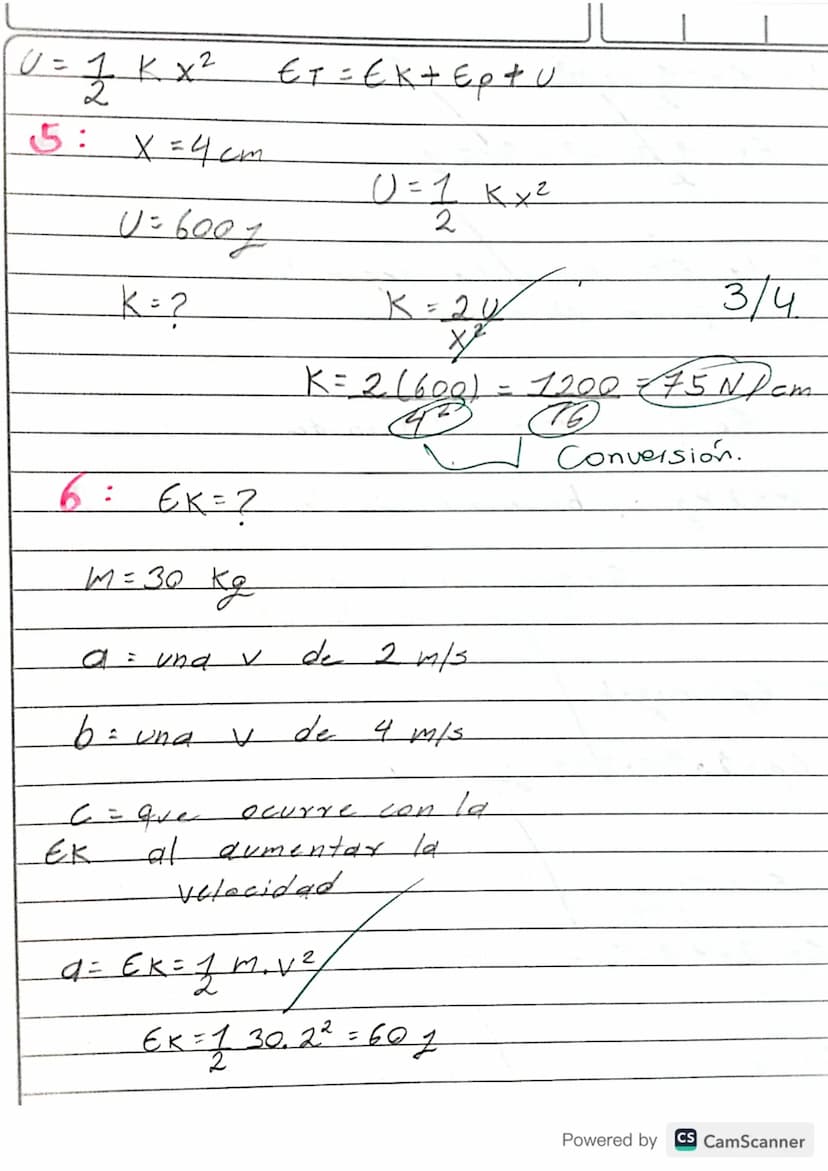 U = 1/2 K x² ET = EK + Ep + U
5: X = 4 cm
U = 1/2 K x²
U = 600 J
K = ? K = 2U/x² 3/4
K = 2(600)/4² = 1200/16 = 75 N/cm
Conversión.
6: EK = ?
m = 30 kg
a = una v de 2 m/s
b = una v de 4 m/s
c = que ocurre con la
EK al aumentar la
velocidad
a = EK = 1/2 m.v²
EK = 1/2 30. 2² = 60 J
Powered by CS CamScanner